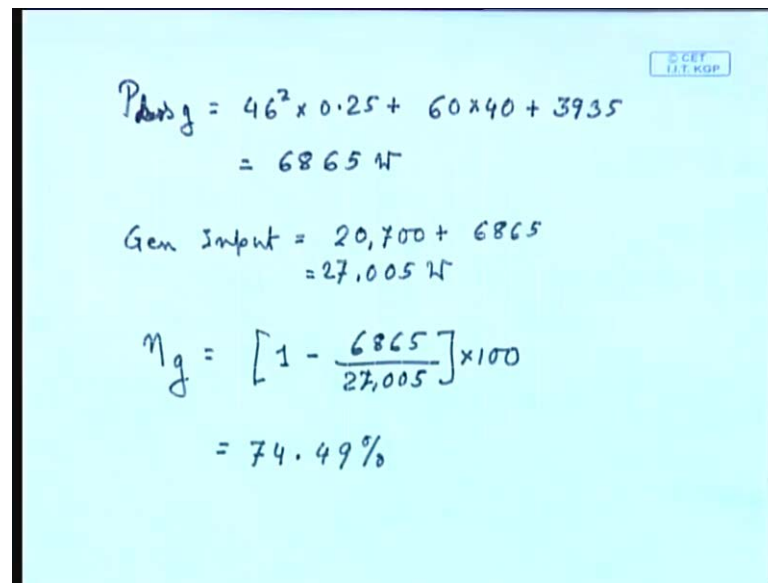 © CET
I.I.T. KGP
P loss g = 46² x 0.25 + 60x40 + 3935
= 6865 W
Gen Input = 20,700 + 6865
= 27,005 W
ηg = [1 - 6865/27,005] x100
= 74.49%